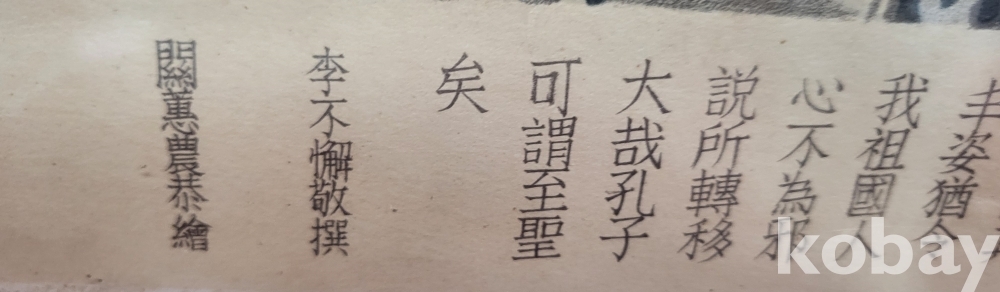 丰姿猶今
我祖國人
心不為邪
說所轉移
大哉孔子
可謂至聖
矣
李不懈敬撰
關蕙農恭繪
kobay